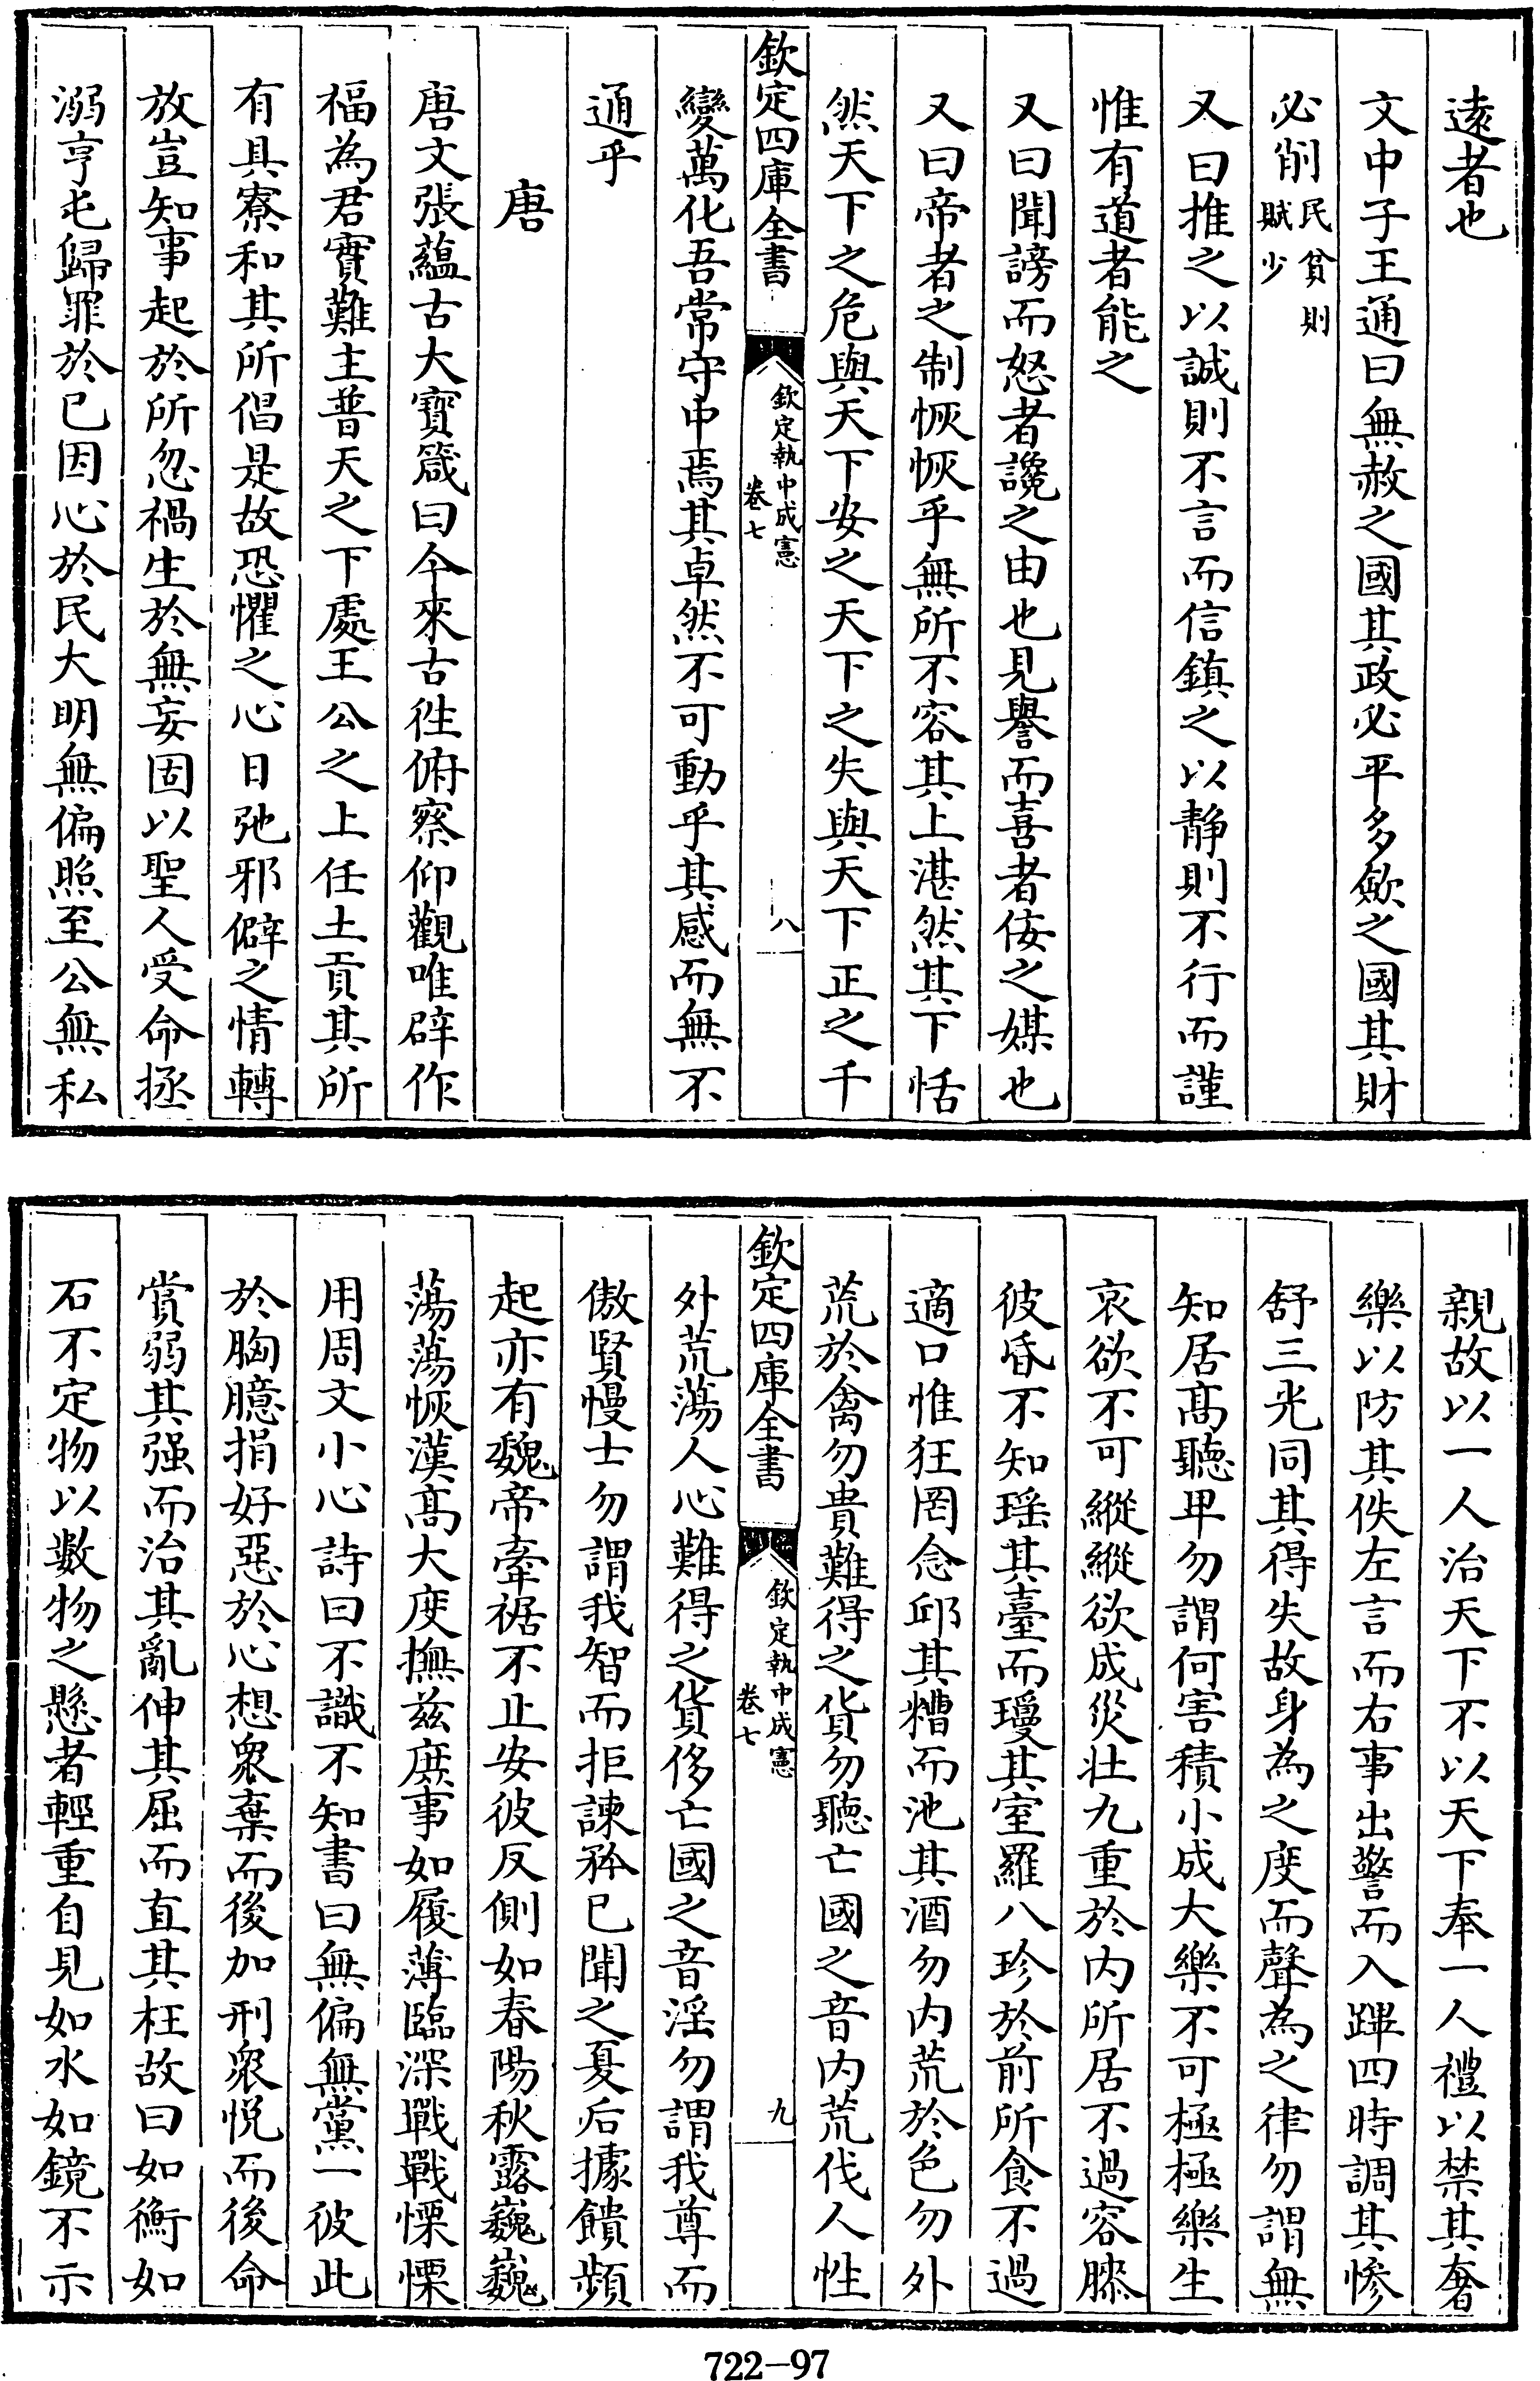 逺者也
文中子王通曰無赦之國其政必平多斂之國其財
必削民貧則賦少
又曰推之以誠則不言而信鎮之以静則不行而謹
惟有道者能之
又曰聞謗而怒者讒之由也見譽而喜者佞之媒也
又曰帝者之制恢恢乎無所不容其上湛然其下恬
然天下之危與天下安之天下之失與天下正之千
欽定四庫全書
欽定執中成憲
卷七
八
變萬化吾常守中焉其卓然不可動乎其感而無不
通乎
唐
唐文張藴古大寳箴曰今來古徃俯察仰觀唯辟作
福為君實難主普天之下處王公之上任土貢其所
有具寮和其所倡是故恐懼之心日弛邪僻之情轉
放豈知事起於所忽禍生於無妄固以聖人受命拯
溺亨屯歸罪於已因心於民大明無偏照至公無私
親故以一人治天下不以天下奉一人禮以禁其奢
樂以防其佚左言而右事出警而入蹕四時調其慘
舒三光同其得失故身為之度而聲為之律勿謂無
知居髙聽卑勿謂何害積小成大樂不可極極樂生
哀欲不可縱縱欲成災壯九重於内所居不過容膝
彼昏不知瑶其臺而瓊其室羅八珍於前所食不過
適口惟狂罔念邱其糟而池其酒勿内荒於色勿外
荒於禽勿貴難得之貨勿聽亡國之音内荒伐人性
欽定四庫全書
欽定執中成憲
卷七
九
外荒蕩人心難得之貨侈亡國之音淫勿謂我尊而
傲賢慢士勿謂我智而拒諫矜已聞之夏后據饋頻
起亦有魏帝牽裾不止安彼反側如春陽秋露巍巍
蕩蕩恢漢髙大度撫兹庶事如履薄臨深戰戰慄慄
用周文小心詩曰不識不知書曰無偏無黨一彼此
於胸臆捐好惡於心想衆棄而後加刑衆悦而後命
賞弱其强而治其亂伸其屈而直其枉故曰如衡如
石不定物以數物之懸者輕重自見如水如鏡不示
722-97